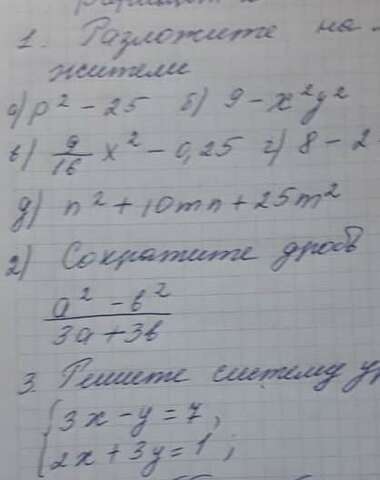 1. Разложите на
жители
а) p² - 25 б) 9 - x²y²
в) 9/16 x² - 0,25 г) 8 - 2
д) n² + 10mn + 25m²
2) Сократите дробь
a² - b² / 3a + 3b
3. Решите систему ур
{3x - y = 7,
{2x + 3y = 1;